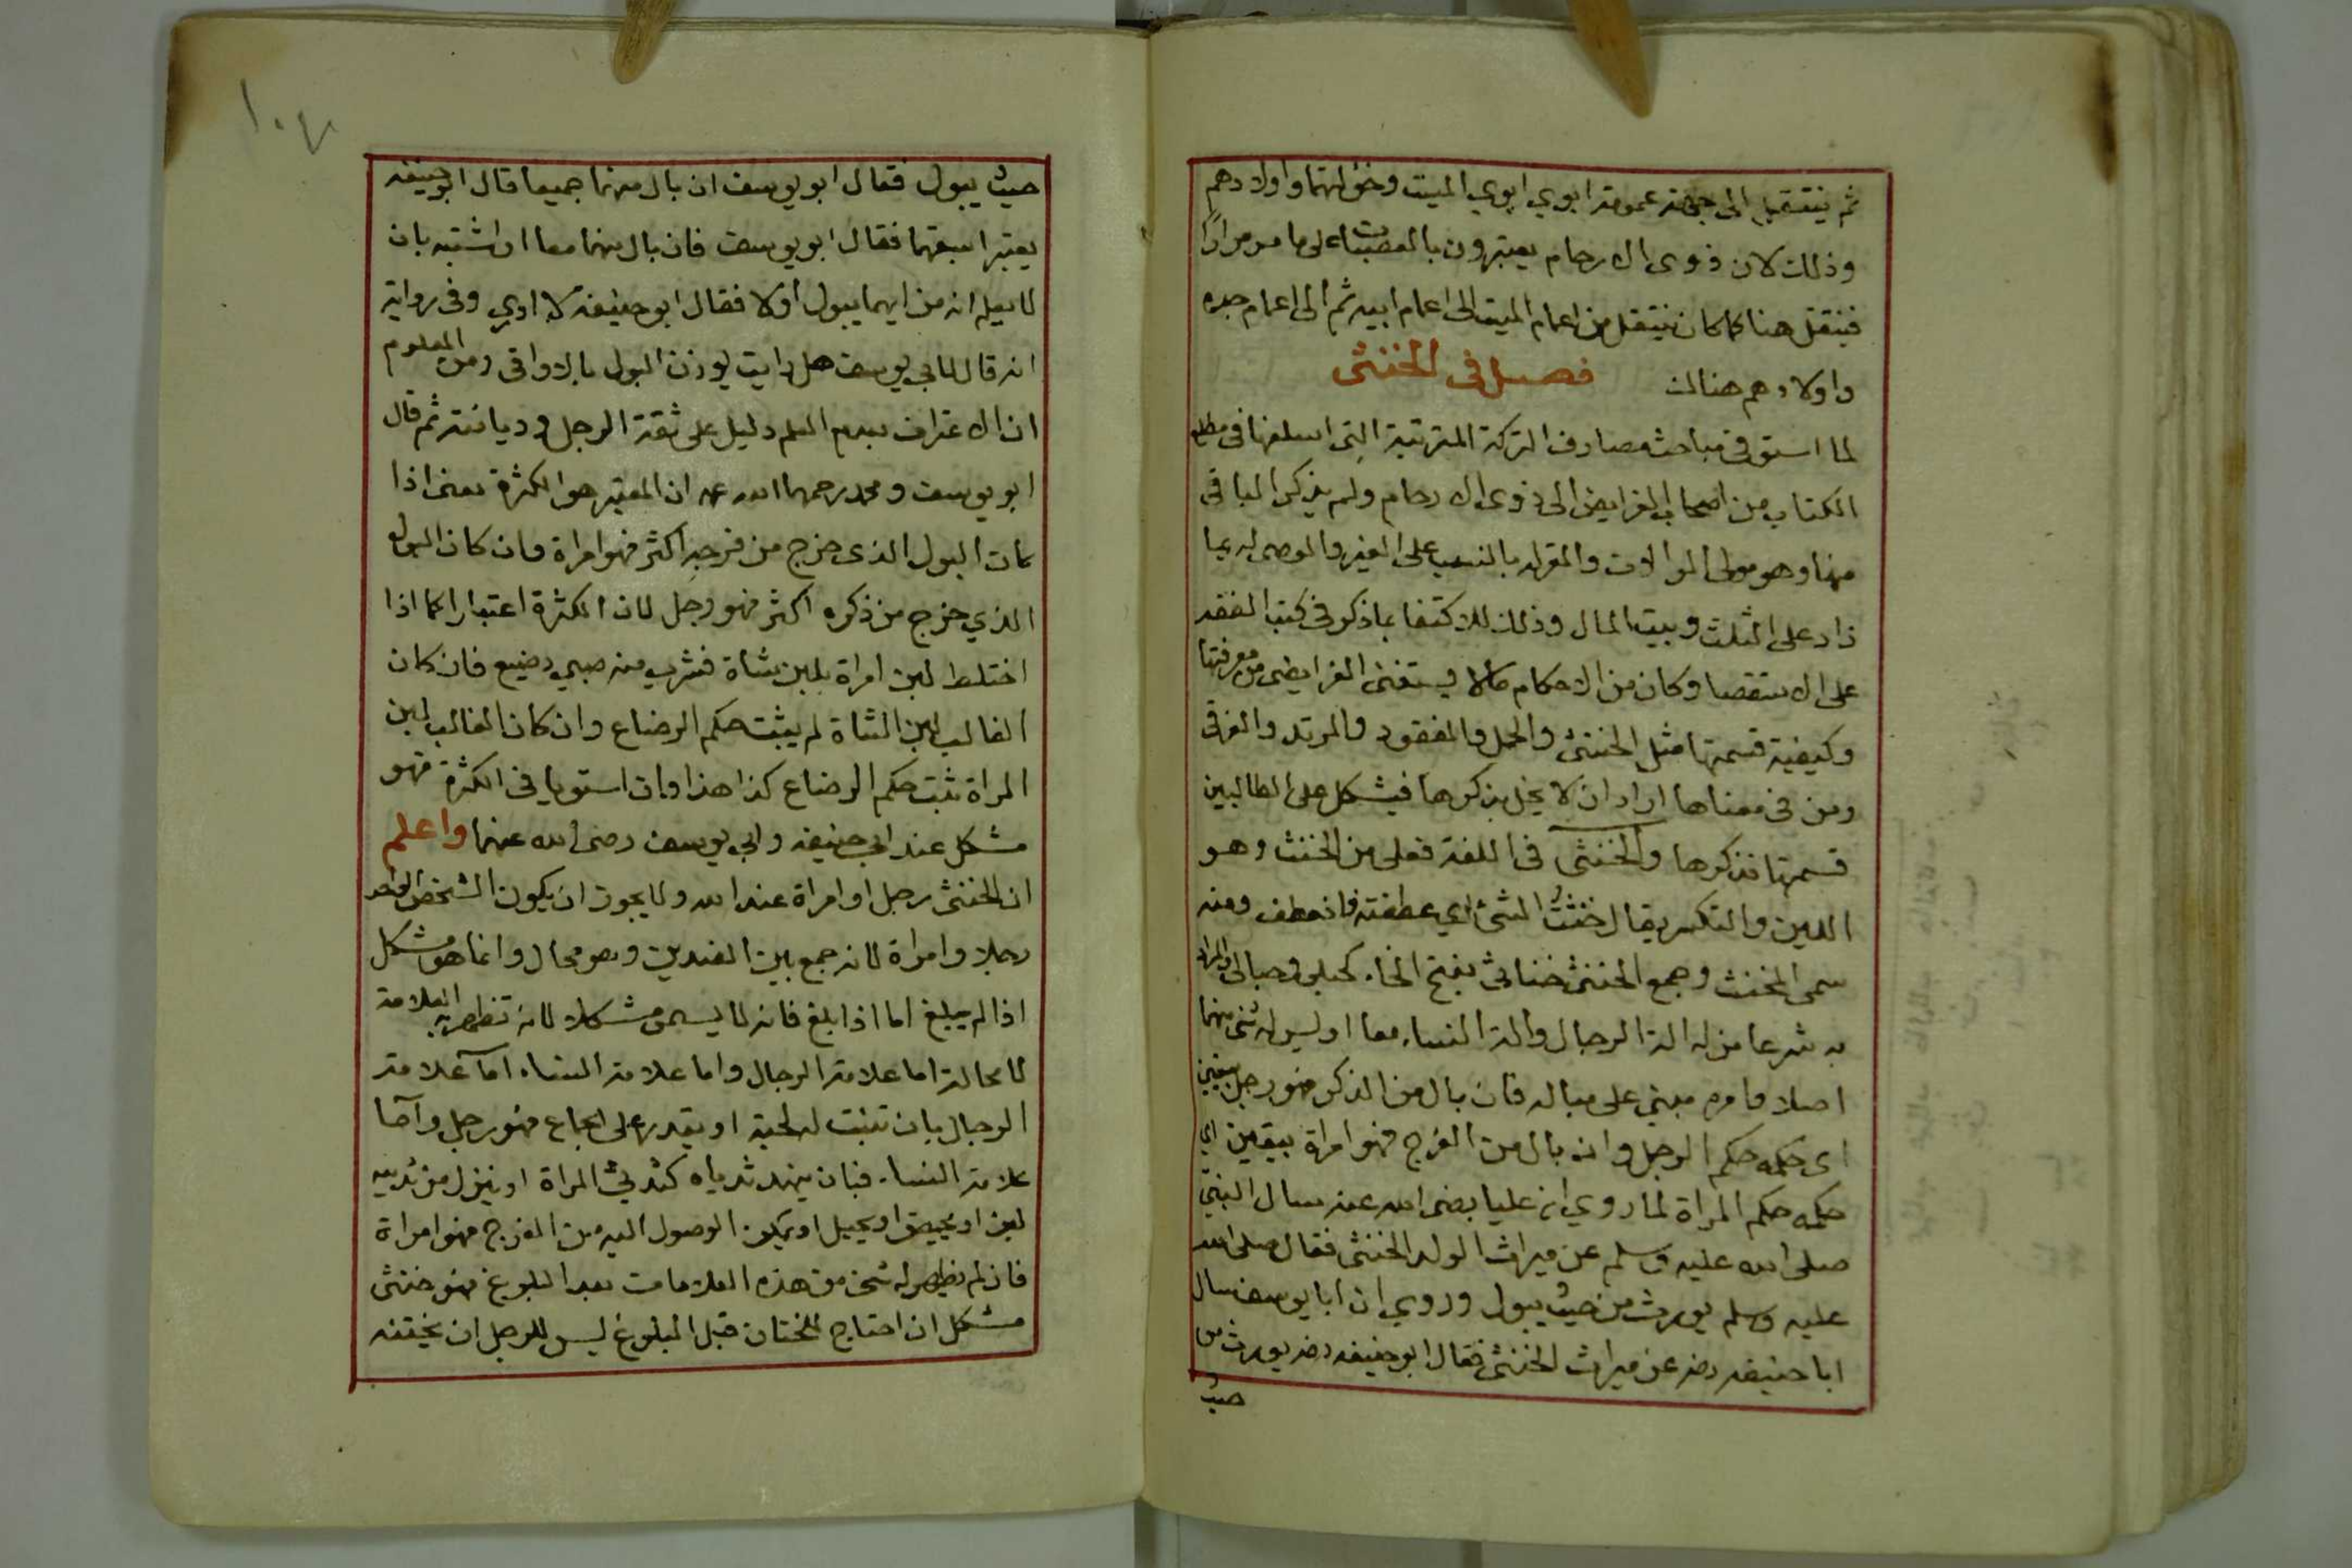 ثم ينتقل الى جهة عمومة ابوي ابوي الميت وخؤلتهما واولادهم
وذلك لان ذوى الارحام يعتبرون بالعصبات على ما مر مرارًا
فينتقل هنا كما كان ينتقل من اعمام الميت الى اعمام ابيه ثم الى اعمام جده
واولادهم هنالك فصل فى الخنثى
لما استوفى مباحث مصارف التركة المترتبة التى اسلفها فى مطلع
الكتاب من اصحاب الفرايض الى ذوى الارحام ولم يذكر الباقى
منها وهو مولى الموالات والمقر له بالنسب على الغير والموصى له بما
زاد على الثلث وبيت المال وذلك للاكتفا بما ذكر فى كتب الفقه
على الاستقصا وكان من الاحكام مالا يستغنى الفرايضى من معرفتها
وكيفية قسمتها مثل الخنثى والحمل والمفقود والمرتد والغرقى
ومن فى معناها اراد ان لا يخل بذكرها فيشكل على الطالبين
قسمتها فذكرها والخنثى فى اللغة فعلى من الخنث وهو
اللين والتكسر يقال خنثت الشئ اي عطفته فانعطف ومنه
سمى المخنث وجمع الخنثى خناثى بفتح الخاء كحبلى وحبالى والمراد
به شرعا من له الة الرجال والة النساء معا او ليس له شئ منهما
اصلا فامره مبني على مباله فان بال من الذكر فهو رجل بيقين
اى حكمه حكم الرجل وان بال من الفرج فهو امراة بيقين اي
حكمه حكم المراة لما روي ان عليا رضى الله عنه سال النبى
صلى الله عليه وسلم عن ميراث الولد الخنثى فقال صلى الله
عليه وسلم يورث من حيث يبول وروي ان ابا يوسف سال
ابا حنيفه رضه عن ميراث الخنثى فقال ابو حنيفه رضه يورث من
حيث
١٠٧
حيث يبول فقال ابو يوسف ان بال منهما جميعا قال ابو حنيفه
يعتبر اسبقهما فقال ابو يوسف فان بال منهما معا او اشتبه بان
لا يعلم انه من ايهما يبول اولا فقال ابو حنيفة لا ادري وفى رواية
انه قال لابي يوسف هل رايت يوزن البول بالاواقى ومن المعلوم
ان الاعتراف بعدم العلم دليل على ثقة الرجل وديانته ثم قال
ابو يوسف ومحمد رحمهما الله ان المعتبر هو الكثرة يعنى اذا
كان البول الذى خرج من فرجه اكثر فهو امراة وان كان البول
الذي خرج من ذكره اكثر فهو رجل لان الكثرة اعتبارا كما اذا
اختلط لبن امراة بلبن شاة فشرب منه صبي رضيع فان كان
الغالب لبن الشاة لم يثبت حكم الرضاع وان كان الغالب لبن
المراة ثبت حكم الرضاع كذا هذا وان استويا فى الكثرة فهو
مشكل عند ابي حنيفه وابي يوسف رضى الله عنهما واعلم
ان الخنثى رجل او امراة عند الله ولا يجوز ان يكون الشخص الواحد
رجلا وامراة لانه جمع بين الضدين وهو محال وانما هو مشكل
اذا لم يبلغ اما اذا بلغ فانه لا يسمى مشكلا لانه تظهر به العلامة
لا محالة اما علامة الرجال واما علامة النساء اما علامة
الرجال بان تنبت له لحية او يقدر على الجماع فهو رجل واما
علامة النساء فبان ينهد ثدياه كثدي المراة او ينزل من ثدييه
لبن او يحيض او يحبل او يمكن الوصول اليه من الفرج فهو امراة
فان لم يظهر له شئ من هذه العلامات بعد البلوغ فهو خنثى
مشكل ان احتاج للختان قبل البلوغ ليس للرجل ان يختنه